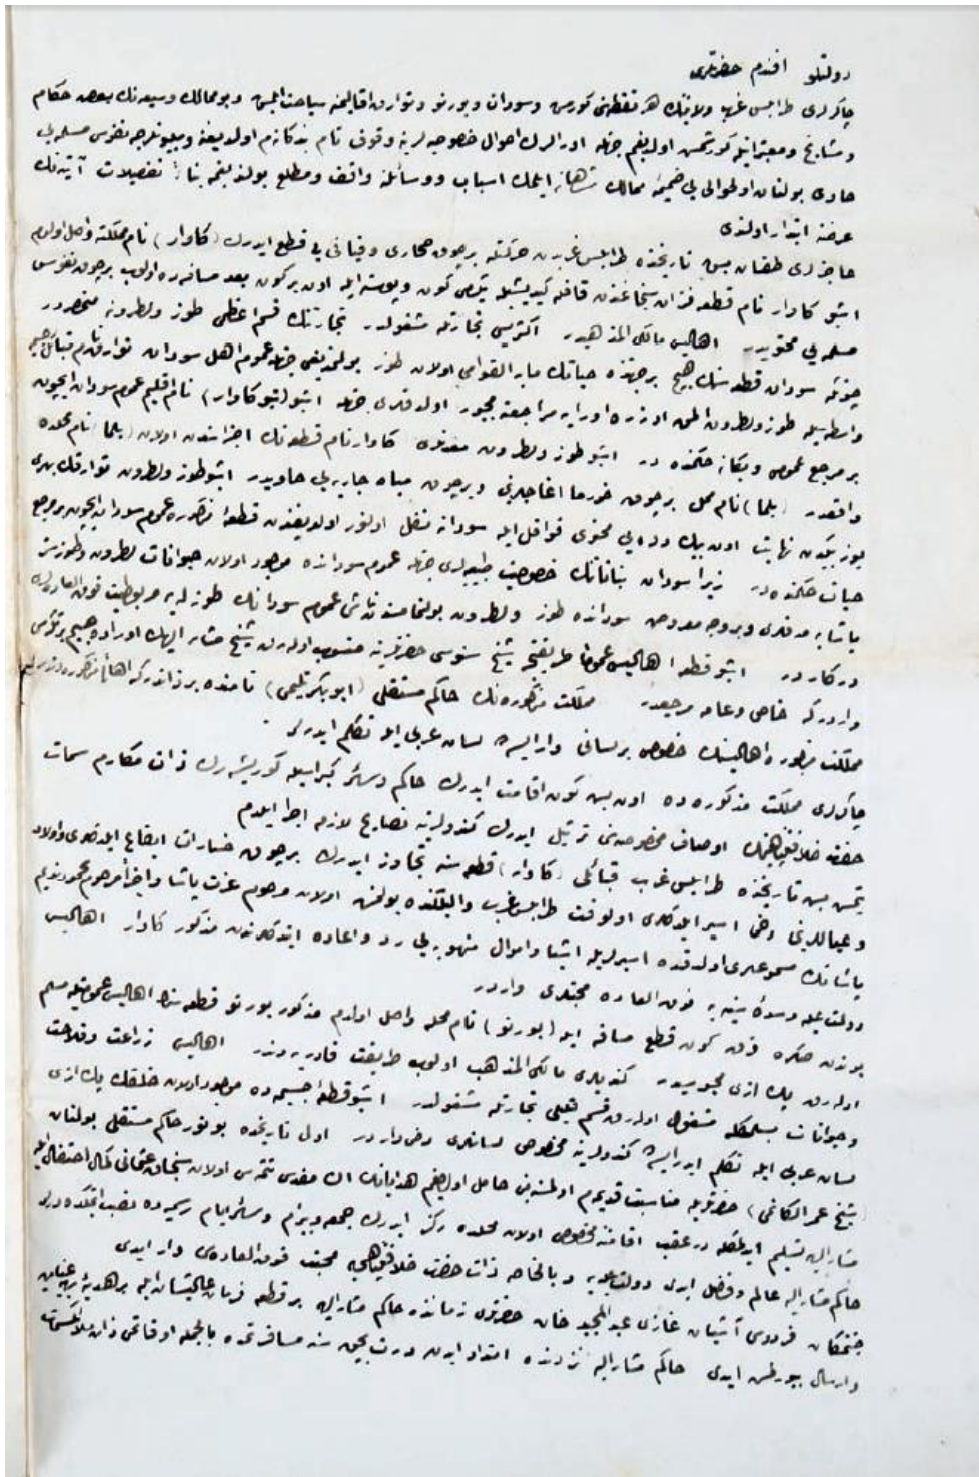 دولتلو افندم حضرتلرى
چاكرلرى طرابلس غرب ولايتنك هر نقطه‌سنى كورمش وسودان وبورنو وتوارق اقاليمنه سياحت ايلمش وبو ممالك وسيعه‌نك بعض حكام
ومشايخ ومعتبرانيله كورشمش اولديغم جهتله اورالرك احوال خصوصيه‌لرينه وقوف تام بندكانه‌م اولديغنه وميليونلرجه نفوس مسلمه‌يى
حاوى بولنان او حوالى‌يى ضميمهٔ ممالك شاهانه ايلمك اسباب ووسائلنه واقف ومطلع بولنديغمه بناءً تفصيلات آتيه‌نك
عرضنه ابتدار اولندى
عاجزلرى طقسان بش تاريخنده طرابلس غربدن حركتله برچوق صحارى وفيافى‌يى قطع ايدرك (كاوار) نام مملكته واصل اولدم
اشبو كاوار نام قطعه فزان سنجاغندن قافله كيديشيله يكرمى كون وپوسته ايله اون بر كون بعد مسافه‌ده اولوب برچوق نفوس
مسلمه‌يى محتويدر اهاليسى مالكى المذهبدر اكثريسى تجارتله مشغولدر تجارتنك قسم اعظمى طوز ولطرونه منحصردر
چونكه سودان قطعه‌سنك هيچ بر جهتنده حياتك ما به القوامى اولان طوز بولنمديغى جهتله عموم اهل سودان توارق نام قبائل جسيمه
واسطه‌سيله طوز ولطرون المق اوزره اورايه مراجعته مجبور اولدقلرى جهتله اشبو (كاوار) نام اقليم عموم سودان ايچون
بر مرجع عمومى ويكانه حكمنده در اشبو طوز ولطرون معدنلرى كاوار نام قطعه‌نك اجزاسندن اولان (بلما) نام محلده
واقعدر (بلما) نام محل برچوق خرما اغاجلرينى وبرچوق مياه جاريه‌يى حاويدر اشبو طوز ولطرون توارقلرك بهرى
يوز بيكدن نهايت اون بيك دوه‌يى محتوى قوافل ايله سودانه نقل اولنور اولديغندن قطعهٔ مذكوره عموم سودان ايچون بر مرجع
حيات حكمنده در زيرا سودان نباتاتنك خصوصيت طبيعه‌لرى جهتله عموم سودانده موجود اولان حيوانات لطرون وطوزسز
ياشايه‌مدقلرى وبر وجه معروض سودانده طوز ولطرون بولنمامسندن ناشى عموم سودانك طوزله مربوطيت فوق العاده‌لرى
دركاردر اشبو قطعه اهاليسى عموماً طريقتجه شيخ سنوسى حضرتلرينه منسوب اولهرق شيخ مشار اليهك اوراده جسيم بر تكيه‌سى
واردر كه خاص وعامه مرجعدر مملكت مذكوره‌نك حاكم مستقلى (ابو بكر تلحى) نامنده بر ذاتدر كه اهالئ مذكوره‌دندر
مملكت مذكوره اهاليسنك خصوصى بر لسانى وارايسه‌ده لسان عربى ايله تكلم ايدرلر
چاكرلرى مملكت مذكوره ده اون بش كون اقامت ايدرك حاكم وسائر كبراسيله كوريشه‌رك ذات مكارم سمات
حضرت خلافتپناهينك اوصاف مخصوصه‌سنى ترتيل ايدرك كندولرينه نصايح لازمه اجرا ايلدم
يتمش بش تاريخنده طرابلس غرب قبائلى (كاوار) قطعه‌سنه تجاوز ايدرك برچوق خسارات ايقاع ايلدكلرى واولاد
وعياللرينى دخى اسير ايلدكلرى او لوقت طرابلس غرب واليلكنده بولنمش اولان مرحوم عزت پاشا واخراً مرحوم محمود نديم
پاشانك مسموعلرى اولدقده اسيرلريله اشيا واموال منهوبه‌يى رد واعاده ايتدكلرندن مذكور كاوار اهاليسى
دولت عليه وسدهٔ سنيه‌يه فوق العاده محبتلرى واردر
بوندن صكره قرق كون قطع مسافه ايله (بورنو) نام محله واصل اولدم مذكور بورنو قطعه‌سنك اهاليسى عموميتله مسلم
اولهرق پك ازى مجوسيدر كنديلرى مالكى المذهب اولوب طريقت قادريه‌دندر اهاليسى زراعت وفلاحت
وحيوانات بسلمكله مشغول اولهرق قسم قليلى تجارتله مشغولدر اشبو قطعهٔ جسيمه ده موجود اولان خلقك پك ازى
لسان عربى ايله تكلم ايدرايسه‌ده كندولرينه مخصوص لسانلرى دخى واردر اول تاريخده بورنو حاكم مستقلى بولنان
(شيخ عمر الكانمى) حضرتلريله مناسبت قديمه‌م اولمسنه مبنى حامل اولديغم هدايانك اك مقدسى اولان سنجاق عثمانى كمال احتفال ايله
مشار اليه تسليم ايدلمكله درعقب اقامتنه مخصوص اولان محلده ركز ايدرك جمعه وبيرام وسائر ايام رسميه ده نصب ايتمكده‌در
حاكم مشار اليه عالم وفاضل ايدى دولت عليه‌يه وبالخاصه ذات حضرت خلافتپناهى‌يه محبت فوق العاده‌سى وار ايدى
جنتمكان فردوس آشيان غازى عبد المجيد خان حضرتلرى زماننده حاكم مشار اليهه بر قطعه فرمان عاليشان ايله بر هديهٔ
وارسال بيورلمش ايدى حاكم مشار اليه نزدنده امتداد ايدن درت بچق سنه مسافرتمده بالجمله اوقاتمى ذات